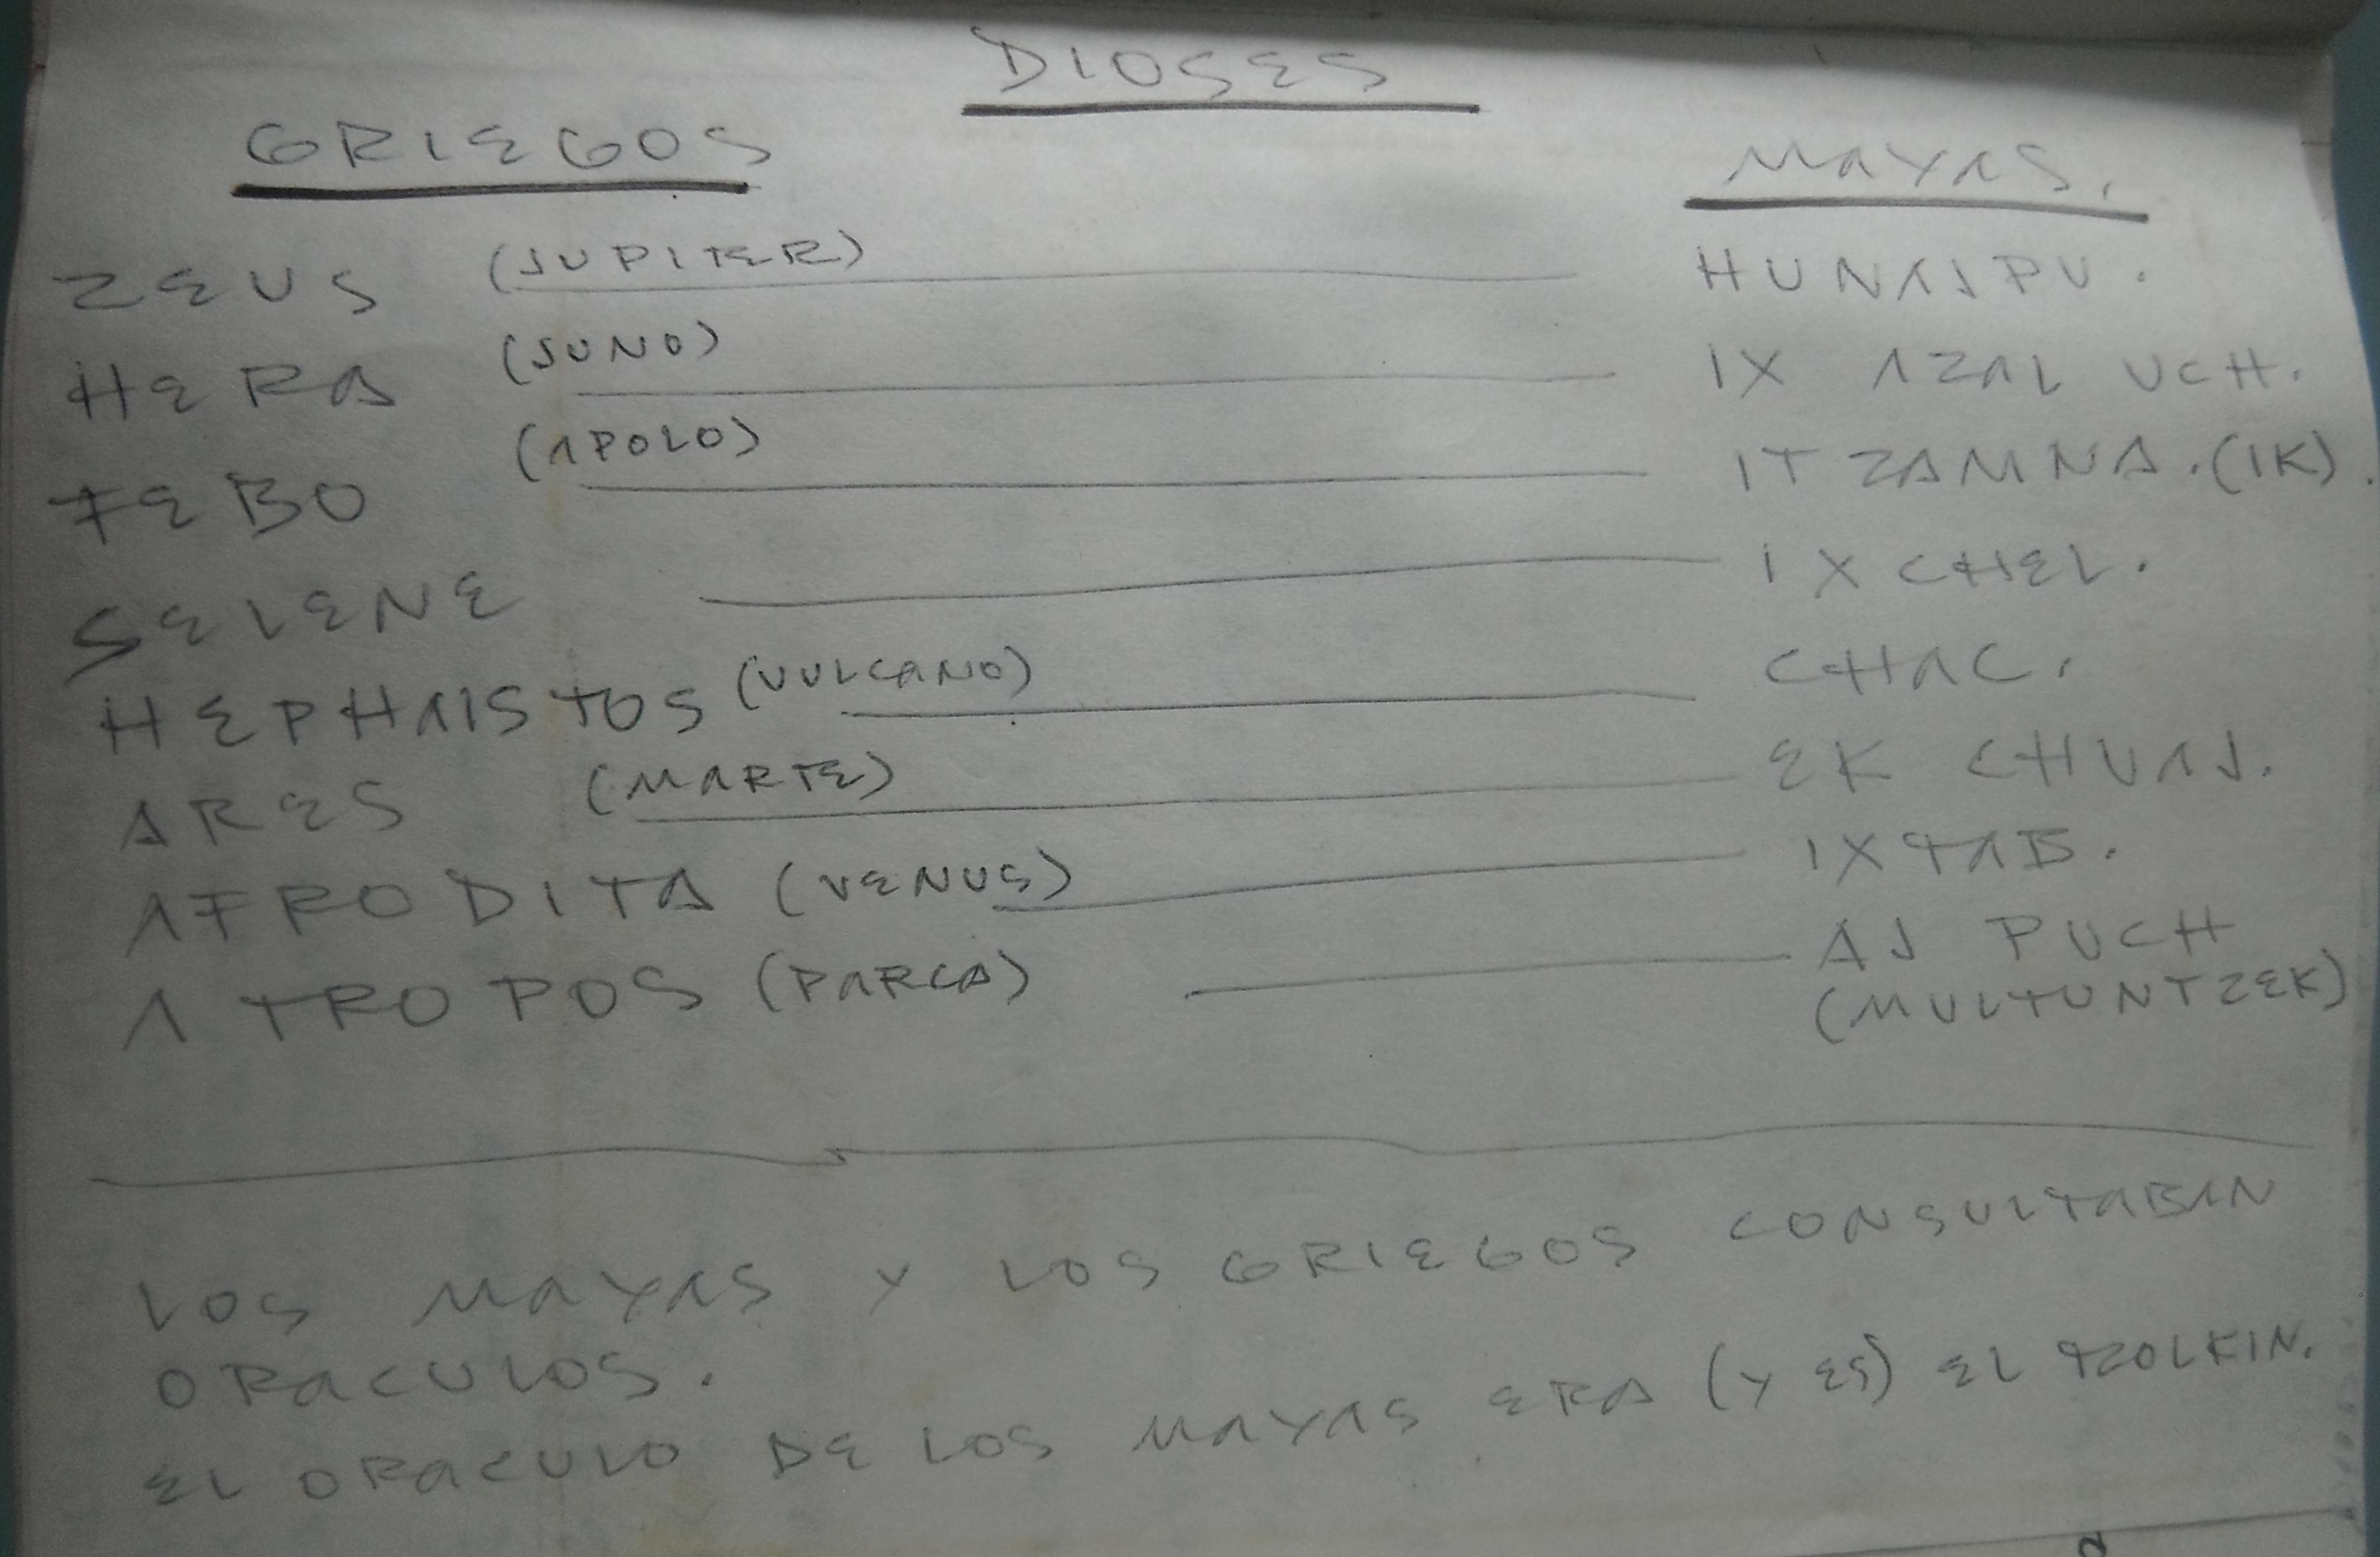 DIOSES
GRIEGOS MAYAS.
ZEUS (JUPITER) HUNAJPU.
HERA (JUNO) IX AZAL UCH.
FEBO (APOLO) ITZAMNA. (IK).
SELENE IXCHEL.
HEPHAISTOS (VULCANO) CHAC.
ARES (MARTE) EK CHUAJ.
AFRODITA (VENUS) IXTAB.
ATROPOS (PARCA) AJ PUCH
(MULTUNTZEK)
LOS MAYAS Y LOS GRIEGOS CONSULTABAN
ORACULOS.
EL ORACULO DE LOS MAYAS ERA (Y ES) EL TZOLKIN.